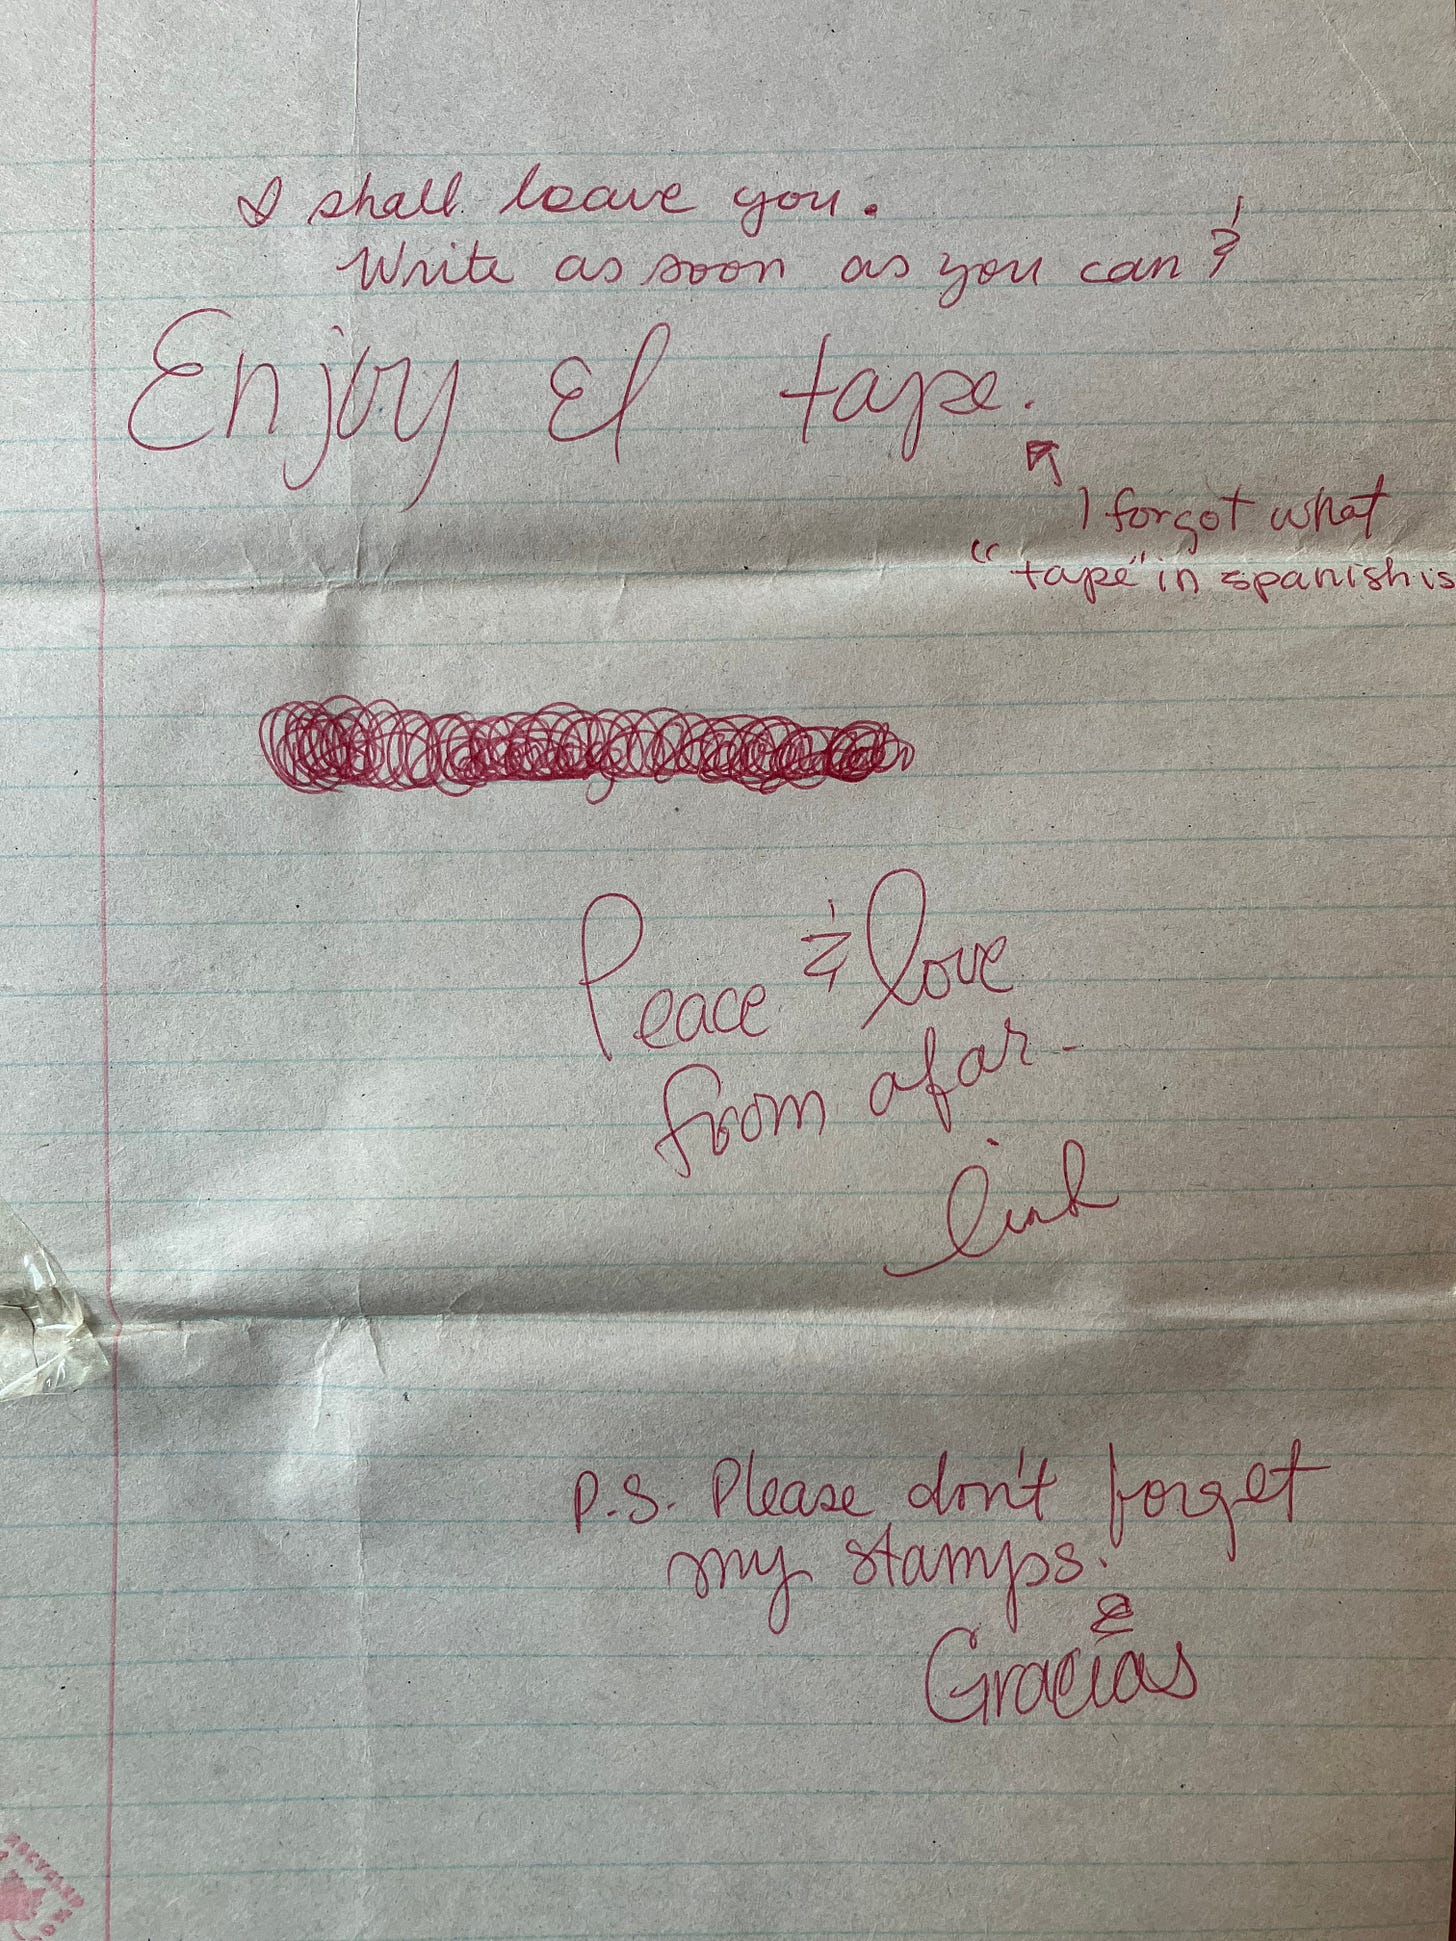 I shall leave you.
Write as soon as you can &
Enjoy El tape.
I forgot what
"tape" in spanish is
Peace & love
from afar -
link
P.S. Please don't forget
my stamps.
Gracias
RECYCLED